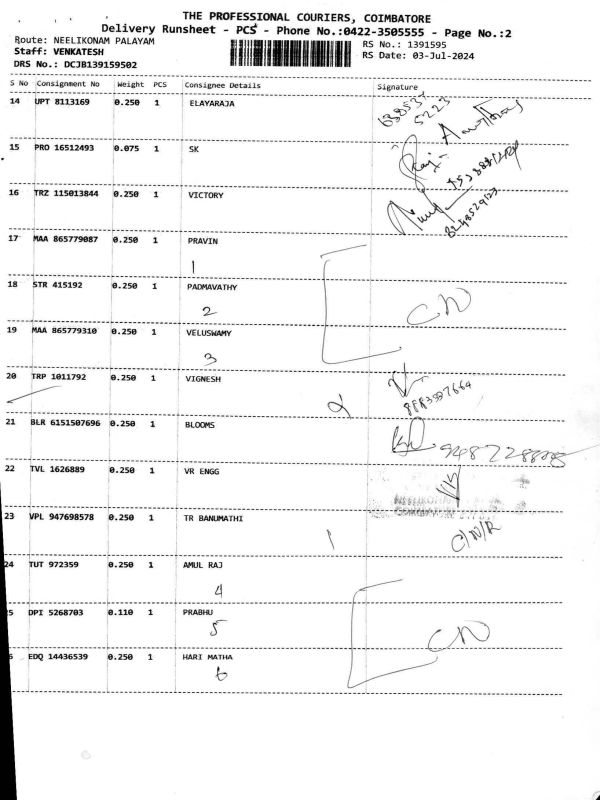 THE PROFESSIONAL COURIERS, COIMBATORE
Delivery Runsheet - PCS - Phone No.:0422-3505555 - Page No.:2
Route: NEELIKONAM PALAYAM RS No.: 1391595
Staff: VENKATESH RS Date: 03-Jul-2024
DRS No.: DCJB139159502
S No Consignment No Weight PCS Consignee Details Signature
14 UPT 8113169 0.250 1 ELAYARAJA
5223
15 PRO 16512493 0.075 1 SK
16 TRZ 115013844 0.250 1 VICTORY
17 MAA 865779087 0.250 1 PRAVIN
1
18 STR 415192 0.250 1 PADMAVATHY
2
19 MAA 865779310 0.250 1 VELUSWAMY
3
20 TRP 1011792 0.250 1 VIGNESH
21 BLR 6151507696 0.250 1 BLOOMS
22 TVL 1626889 0.250 1 VR ENGG
23 VPL 947698578 0.250 1 TR BANUMATHI
1 C/N/R
24 TUT 972359 0.250 1 AMUL RAJ
4
5 DPI 5268703 0.110 1 PRABHU
5
6 EDQ 14436539 0.250 1 HARI MATHA
6